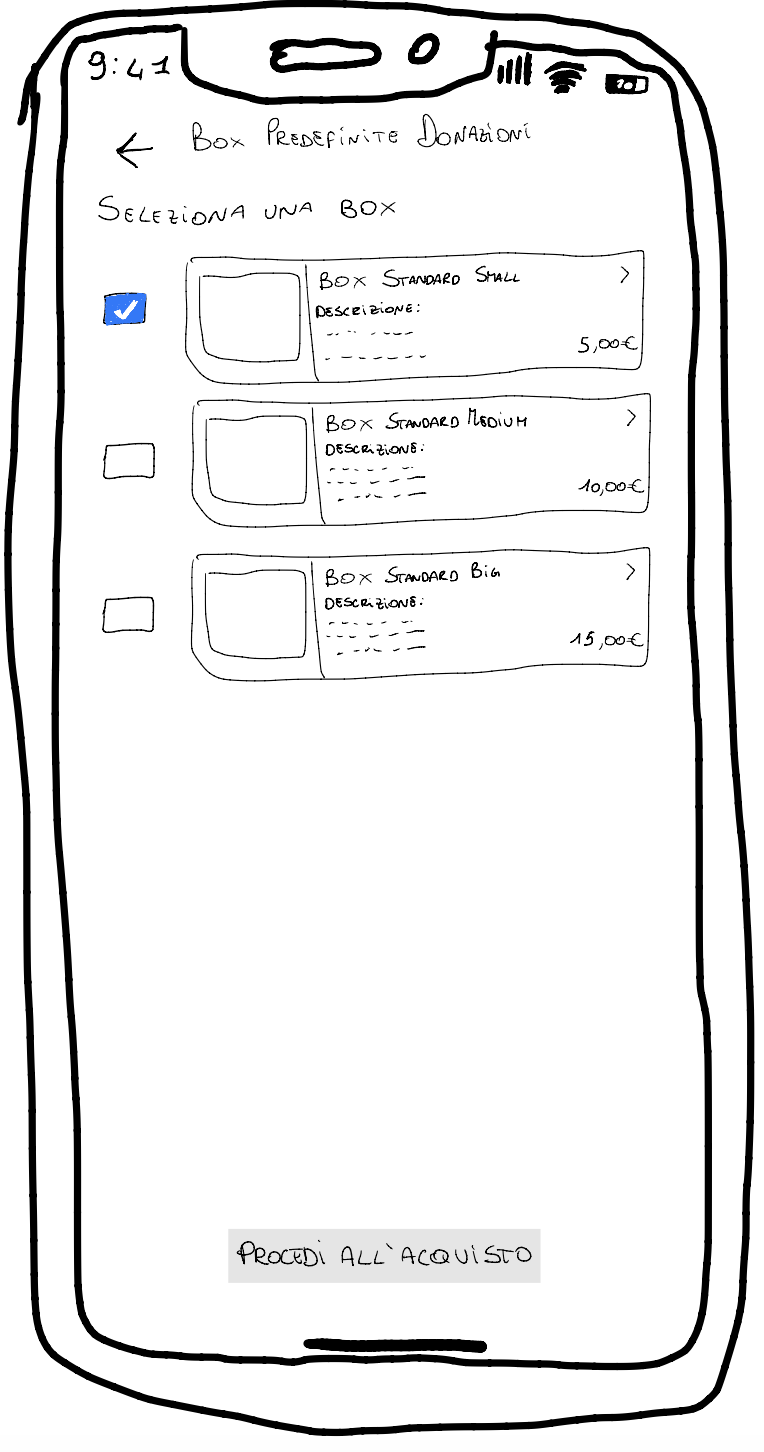 9:41
Box Predefinite Donazioni
Seleziona una box
Box Standard Small
Descrizione:
5,00€
Box Standard Medium
Descrizione:
10,00€
Box Standard Big
Descrizione:
15,00€
Procedi all'acquisto